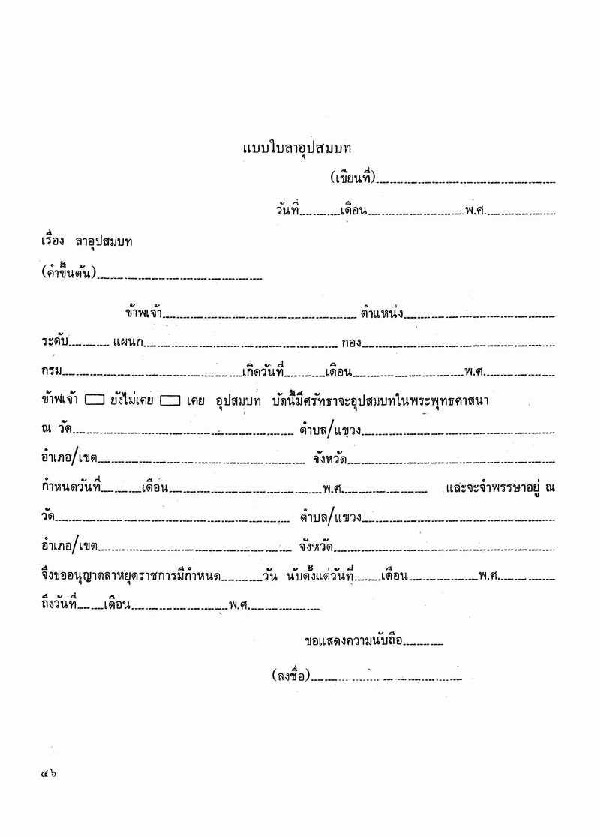 แบบใบลาอุปสมบท
(เขียนที่)
วันที่ เดือน พ.ศ.
เรื่อง ลาอุปสมบท
(คำขึ้นต้น)
ข้าพเจ้า ตำแหน่ง
ระดับ แผนก กอง
กรม เกิดวันที่ เดือน พ.ศ.
ข้าพเจ้า ยังไม่เคย เคย อุปสมบท บัดนี้มีศรัทธาจะอุปสมบทในพระพุทธศาสนา
ณ วัด ตำบล/แขวง
อำเภอ/เขต จังหวัด
กำหนดวันที่ เดือน พ.ศ. และจะจำพรรษาอยู่ ณ
วัด ตำบล/แขวง
อำเภอ/เขต จังหวัด
จึงขออนุญาตลาหยุดราชการมีกำหนด วัน นับตั้งแต่วันที่ เดือน พ.ศ.
ถึงวันที่ เดือน พ.ศ.
ขอแสดงความนับถือ
(ลงชื่อ)
๔๖